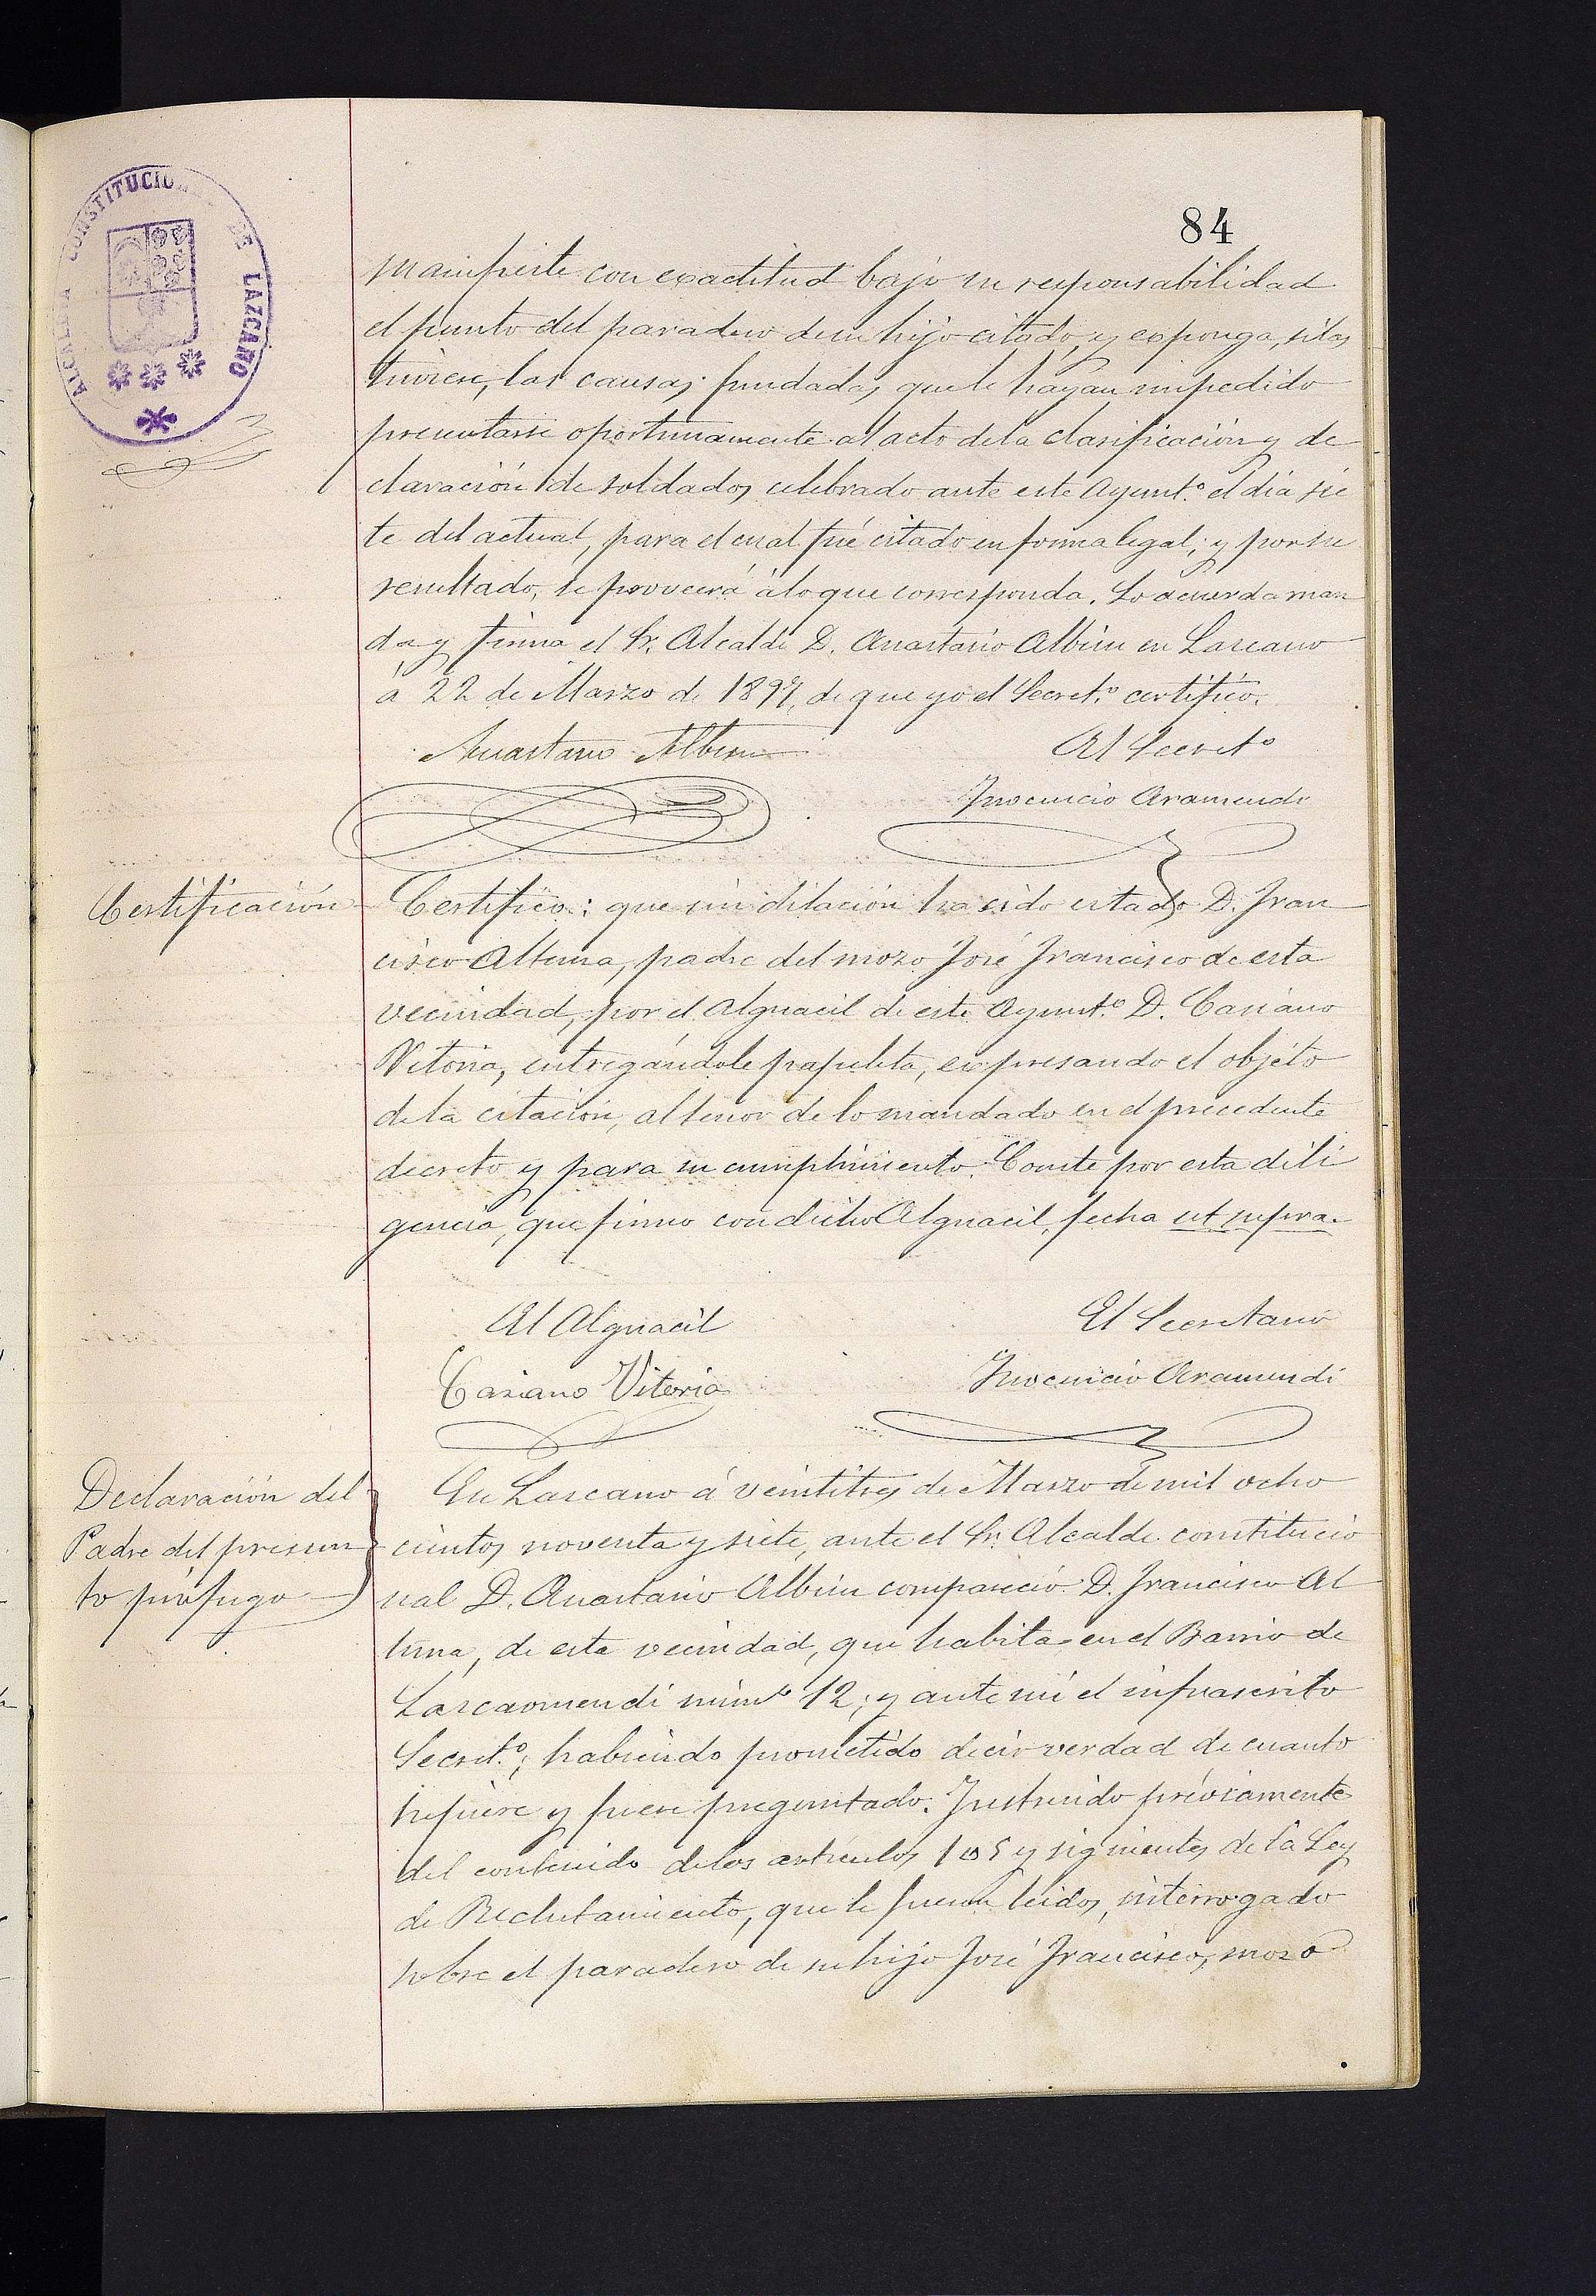 84
ALCALDIA CONSTITUCIONAL DE LAZCANO
manifieste con exactitud bajo su responsabilidad
el punto del paradero de su hijo citado, y exponga, si las
tuviese, las causas fundadas que le hayan impedido
presentarse oportunamente al acto de la clasificación y de
claración de soldados celebrado ante este Ayunt.º el dia sie
te del actual, para el cual fué citado en forma legal; y por su
resultado, se proveerá á lo que corresponda. Lo acuerda man
da y firma el Sr. Alcalde D. Anastasio Albisu en Lazcano
á 22 de Marzo de 1897, de que yo el Secret.º certifico.
Anastasio Albisu
El Secret.º
Inocencio Aramendi
Certificación
Certifico: que sin dilación ha sido citado D. Fran
cisco Altuna, padre del mozo José Francisco de esta
vecindad, por el Alguacil de este Ayunt.º D. Casiano
Vitoria, entregándole papeleta, expresando el objeto
de la citación, al tenor de lo mandado en el precedente
decreto y para su cumplimiento. Conste por esta dili
gencia, que firmo con dicho Alguacil, fecha ut supra.
El Alguacil
El Secretario
Casiano Vitoria
Inocencio Aramendi
Declaración del
Padre del presun
to prófugo
En Lazcano á veintitres de Marzo de mil ocho
cientos noventa y siete, ante el Sr. Alcalde constitucio
nal D. Anastasio Albisu compareció D. Francisco Al
tuna, de esta vecindad, que habita en el Barrio de
Lazcaomendi núm.º 12; y ante mi el infrascrito
Secret.º; habiendo prometido decir verdad de cuanto
supiere y fuere preguntado. Instruido préviamente
del contenido de los artículos 105 y siguientes de la Ley
de Reclutamiento, que le fueron leidos, interrogado
sobre el paradero de su hijo José Francisco, mozo